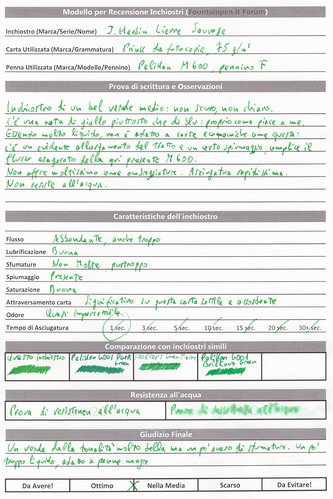 Modello per Recensione Inchiostri (Fountainpen.it Forum)
Inchiostro (Marca/Serie/Nome) J. Herbin Lierre Sauvage
Carta Utilizzata (Marca/Grammatura) Prink da fotocopie, 75 g/m²
Penna Utilizzata (Marca/Modello/Pennino) Pelikan M600, pennino F
Prova di scrittura e Osservazioni
Inchiostro di un bel verde medio: non scuro, non chiaro.
C'è una nota di giallo piuttosto che di blu: proprio come piace a me.
Essendo molto liquido, non è adatto a carte economiche come questa:
c'è un evidente allargamento del tratto e un certo spiumaggio, complice il
flusso esagerato della qui presente M600.
Non offre moltissimo come ombreggiature. Asciugatura rapidissima.
Non resiste all'acqua.
Caratteristiche dell'inchiostro
Flusso Abbondante, anche troppo
Lubrificazione Buona
Sfumature Non Molte, purtroppo
Spiumaggio Presente
Saturazione Buona
Attraversamento carta Significativo su questa carta sottile e assorbente
Odore Quasi impercettibile
Tempo di Asciugatura 1 sec. 3 sec. 5 sec. 10 sec. 15 sec. 20 sec. 30+sec.
Comparazione con inchiostri simili
Questo inchiostro Pelikan 4001 Dark Green Pelikan 4001 Brilliant Green
Resistenza all'acqua
Prova di resistenza all'acqua Prova di resistenza all'acqua
Giudizio Finale
Un verde dalla tonalità molto bella ma un po' avaro di sfumature. Un po'
troppo liquido, adatto a penne magre
Da Avere! Ottimo Nella Media Scarso Da Evitare!